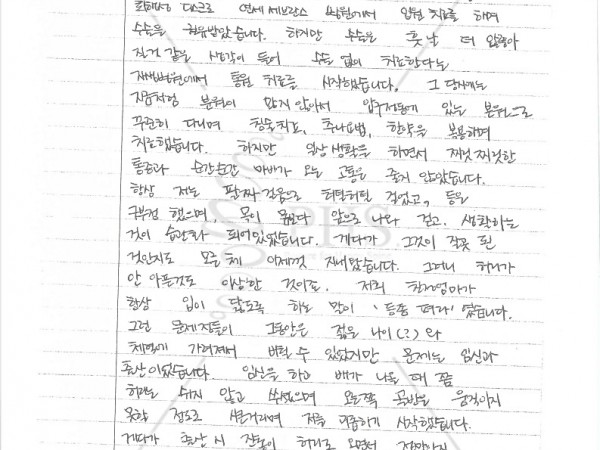 최해성 디스크로 연세세브란스 병원에서 입원 치료를 하며
수술을 권유받았습니다. 하지만 수술은 훗날 더 안좋아
질거 같은 생각이 들어 수술 없이 치료한다는
자생한방병원에서 통원 치료를 시작했습니다. 그 당시에는
지금처럼 분원이 많지 않아서 압구정동에 있는 본원으로
꾸준히 다니며 침술치료, 추나요법, 한약을 복용하며
치료했습니다. 하지만 일상생활을 하면서 찌릿찌릿한
통증과 순간순간 마비가 오는 고통은 줄지 않았습니다.
항상 저는 팔자걸음으로 허덜허덜 걸었고, 등을
구부정 했으며, 목이 몸보다 앞으로 나와 걷고. 생활하는
것이 습관화 되어있었습니다. 게다가 그것이 잘못 된
것인지도 모른체 이제껏 지내왔습니다. 그러니 허리가
안 아픈것도 이상한 것이죠. 저희 친정엄마가
항상 입이 닳도록 하는 말이 '등좀 펴라' 였습니다.
그런 문제점들이 그동안은 젊은 나이(?)와
체력에 가려져서 버틸 수 있었지만 문제는 임신과
출산이었습니다. 임신을 하고 배가 나올 때 쯤
허리는 쉬지 않고 쑤셨으며 오른쪽 골반은 움직이지
못할 정도로 삐걱거리며 저를 괴롭히기 시작했습니다.
게다가 출산 시 진통이 허리로 오면서